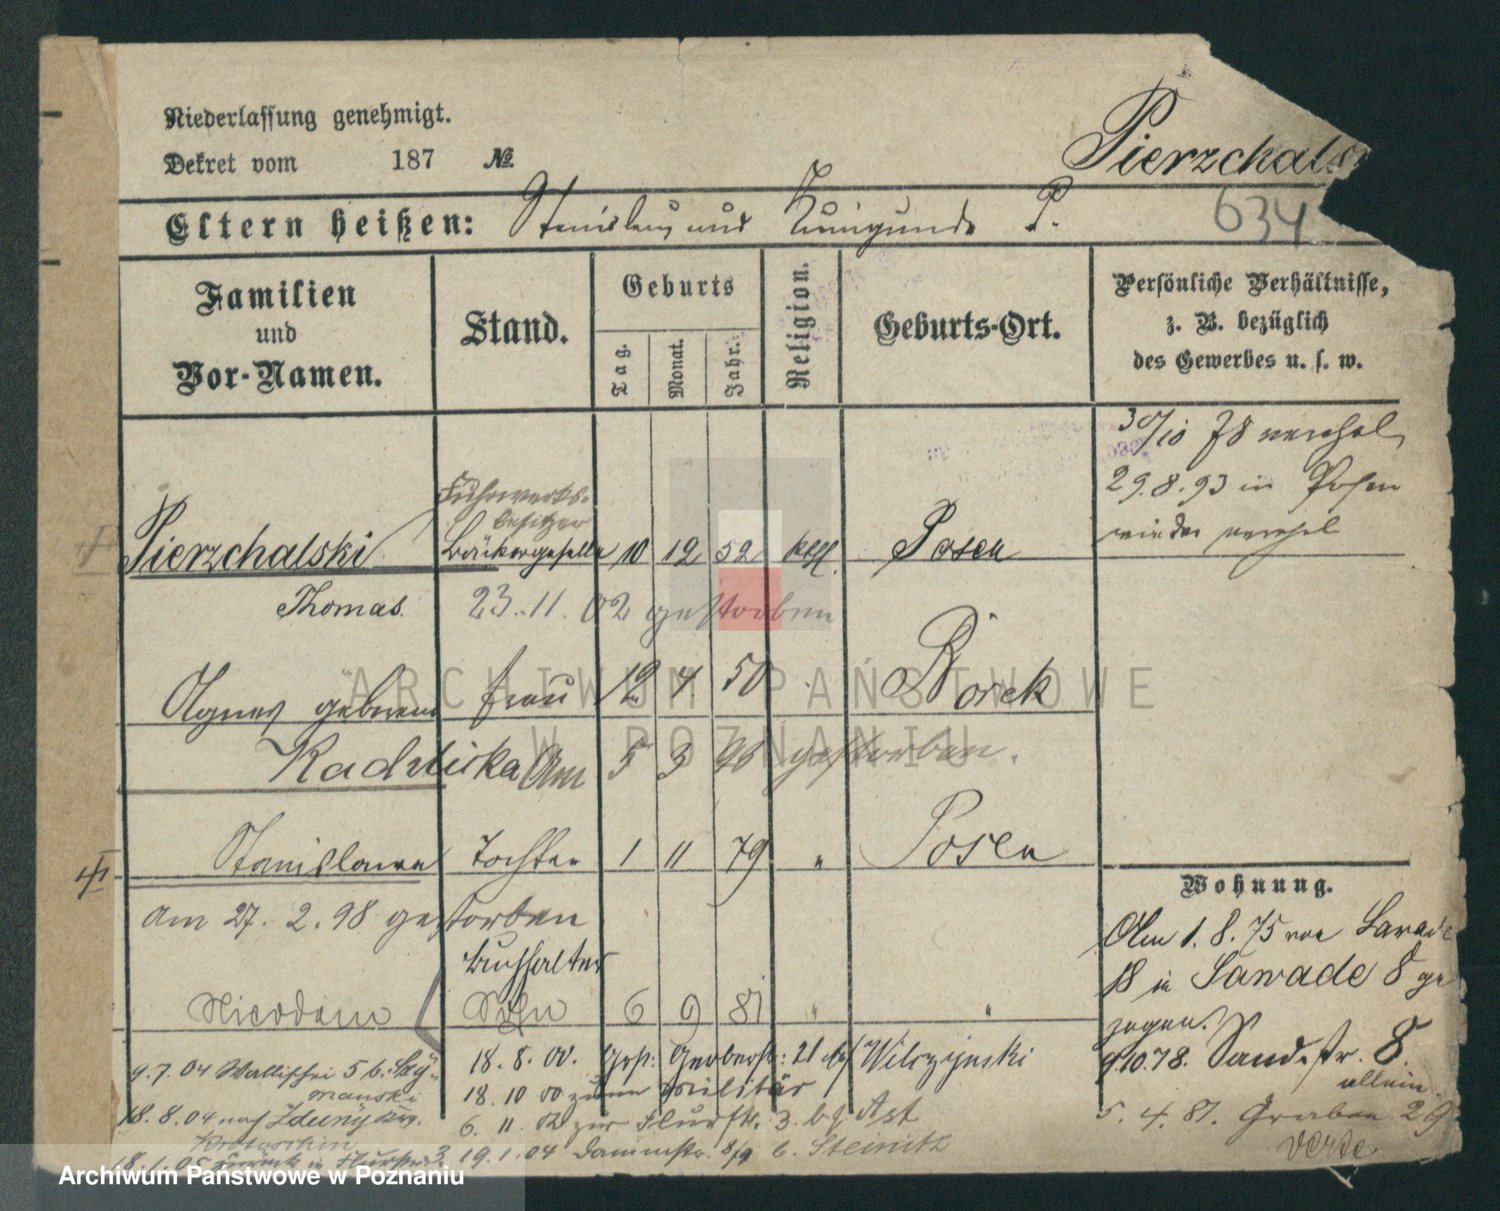 Niederlassung genehmigt.
Dekret vom 187 №
Pierzchals
634
Eltern heißen: Stanislaus und Kunigunde P.
Familien
und
Vor-Namen.
Stand.
Geburts
Tag.
Monat.
Jahr.
Religion.
Geburts-Ort.
Persönliche Verhältnisse,
z. B. bezüglich
des Gewerbes u. s. w.
30/10 78 verehel
29.8.93 in Posen
wieder verehel
Fuhrwerks-
besitzer
Pierzchalski Bäckergeselle 10 12 52 kath. Posen
Thomas 23.11.02 gestorben
Agnes geborene Frau 4 50 Borek
Am 5 3 93 gestorben.
Stanislawa Tochter 1 11 79 " Posen
Am 27. 2. 98 gestorben
Buchhalter
Nicodem Sohn 6 9 81 " "
Wohnung.
Am 1. 8. 75 von Sawade
18 in Sawade 8 ge
zogen.
9.10.78. Sandstr. 8.
allein
5. 4. 81. Graben 29
verte
18. 8. 00. Gerberstr: 21 bei Wilczynski
18. 10 00 zum Militär
6. 11. 02 zur Flurstr. 3. bei Ast
19. 1. 04 Dammstr. 8/9 b. Steinitz
9. 7. 04 Wallischei 5 b. Szy-
manski
18. 8. 04 nach Zduny Krs.
Krotoschin
18. 1. 05 zurück in Flurstr. 3
ARCHIWUM PAŃSTWOWE
W POZNANIU
Archiwum Państwowe w Poznaniu